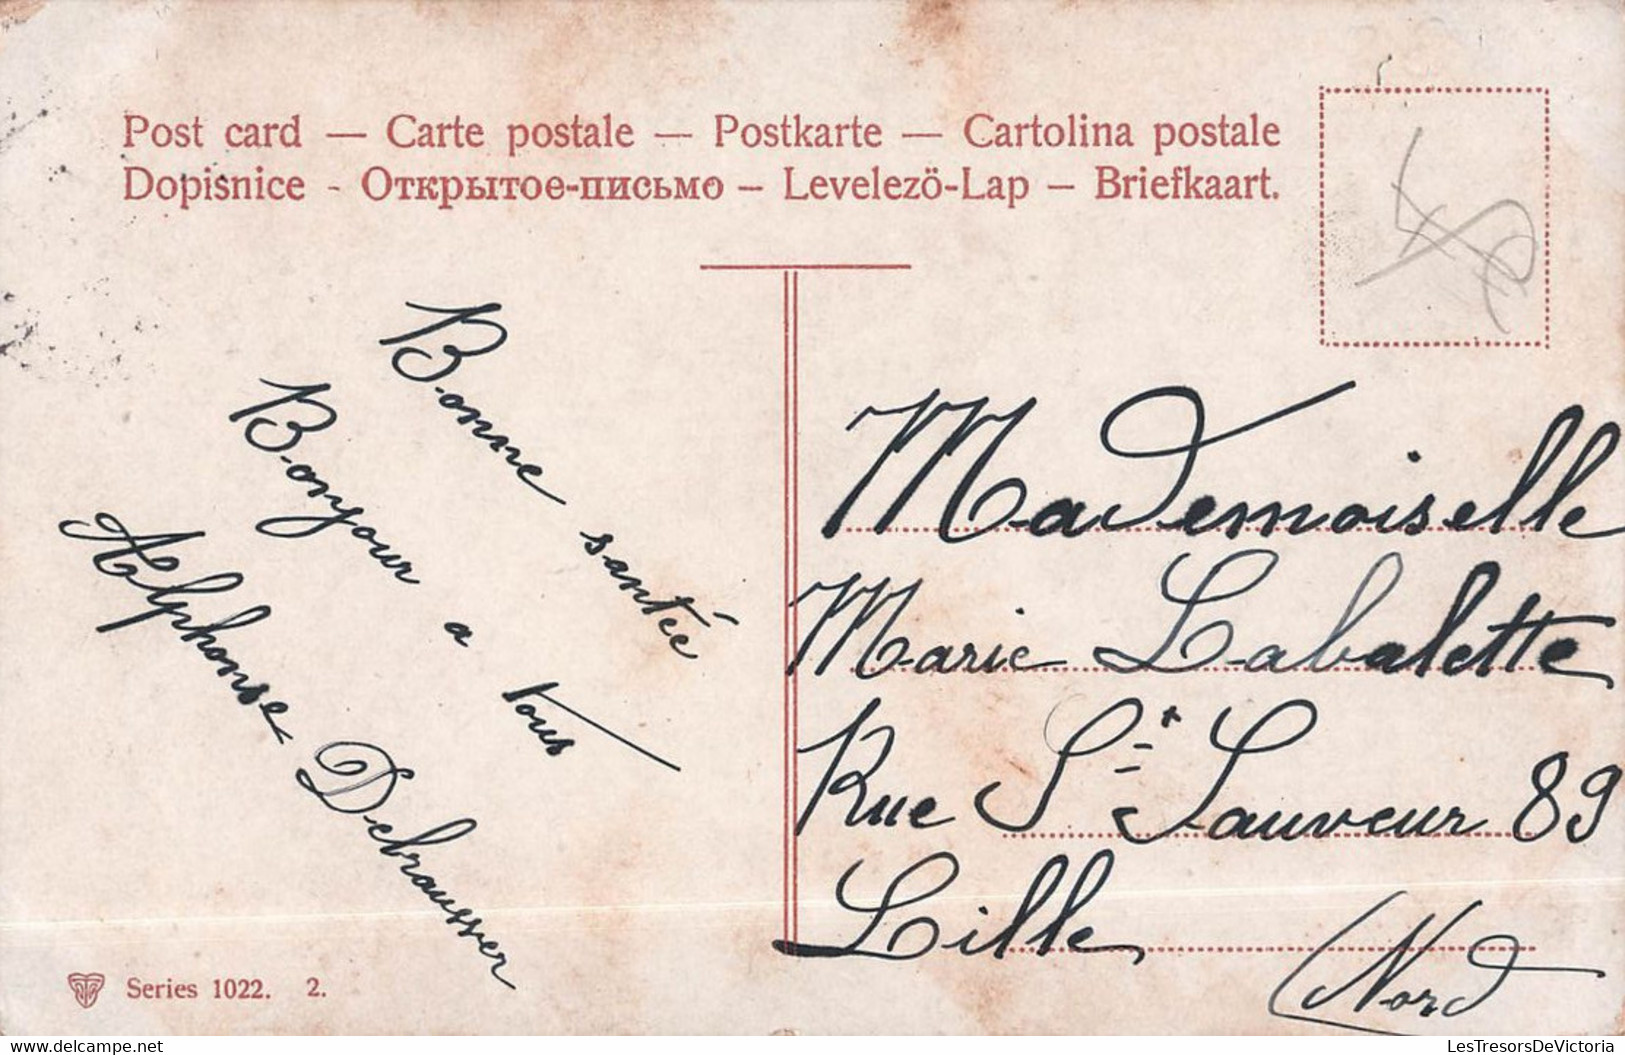 Post card — Carte postale — Postkarte — Cartolina postale
Dopisnice - Открытое-письмо – Levelezö-Lap – Briefkaart.
Bonne santée
Bonjour a tous
Alphonse
Mademoiselle
Marie Labalette
Rue St Sauveur 89
Lille
(Nord
Series 1022. 2.
www.delcampe.net
LesTresorsDeVictoria